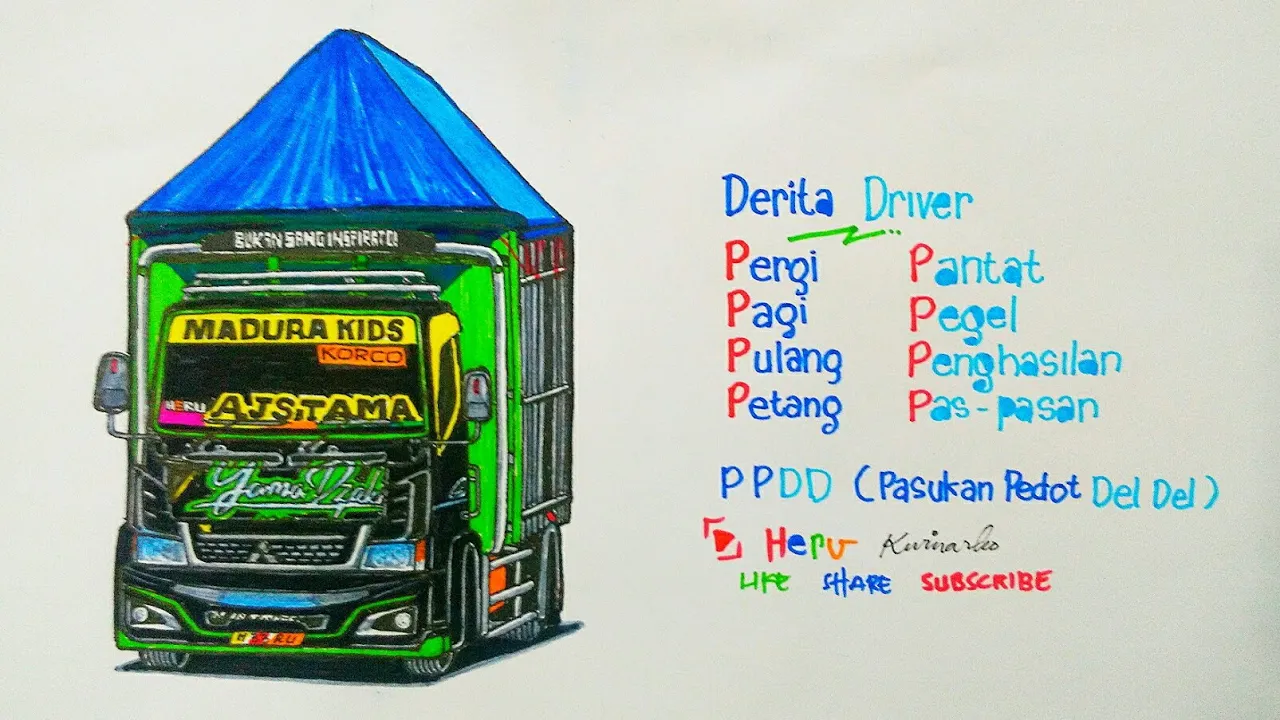 BUKAN SANG INSPIRATOR
MADURA KIDS
KORCO
HERU AJSTAMA
Yama Dzaki
HERU
Derita Driver
Pergi Pantat
Pagi Pegel
Pulang Penghasilan
Petang Pas-pasan
PPDD (Pasukan Pedot Del Del)
Heru Kurinarko
LIKE SHARE SUBSCRIBE